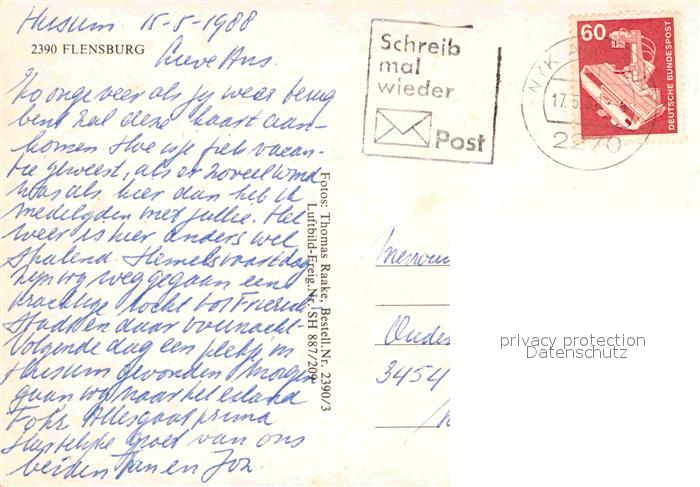 Husum 15-5-1988
2390 FLENSBURG
Lieve Ans.
Zo ongeveer als jij weer terug
bent zal deze kaart aan-
komen. Hoe is je vacan-
tie geweest, als er zoveel wind
was als hier dan heb ik
medelijden met jullie. Het
weer is hier anders wel
stralend. Hemelvaartsdag
zijn wij weggegaan een
prachtige tocht tot Friedrich-
stadt en daar overnacht.
Volgende dag een plekje in
Husum gevonden. Morgen
gaan wij naar het eiland
Föhr. Alles gaat prima
Hartelijke groet van ons
beiden Jan en
Fotos: Thomas Raake, Bestell.Nr. 2390/3
Luftbild-Freig.Nr. SH 887/209
Schreib
mal
wieder
Post
NYK
17.5
2270
60
DEUTSCHE BUNDESPOST
Mevrou
Oudes
3454
privacy protection
Datenschutz